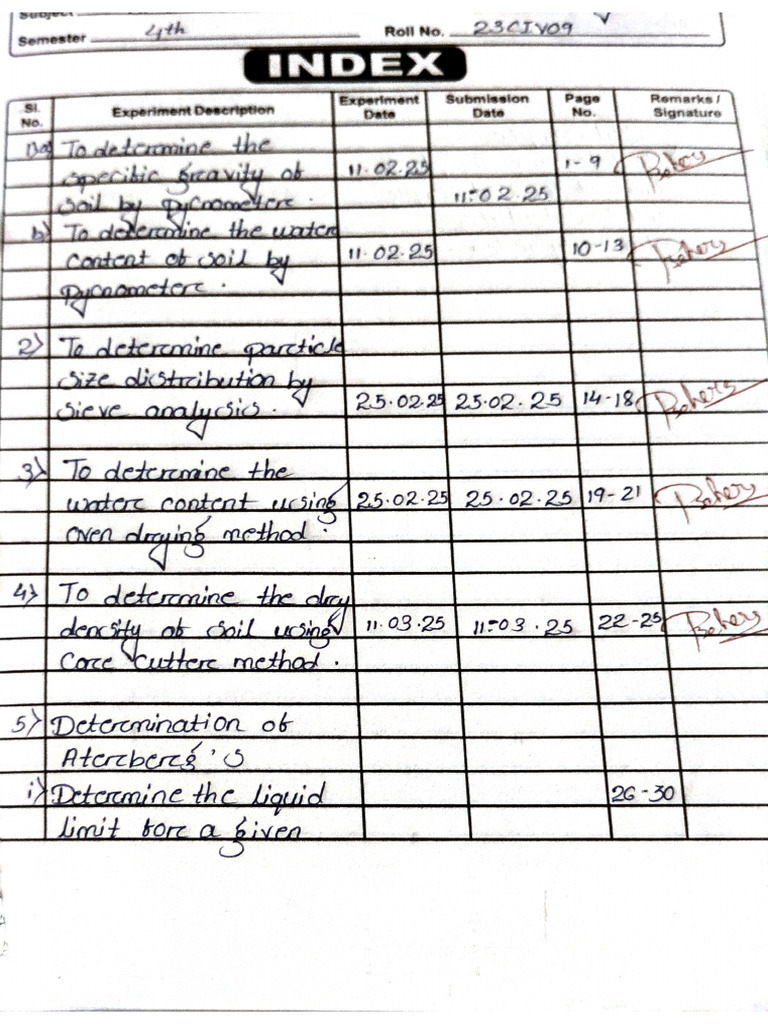 Subject
Semester 4th Roll No. 23CIV09
INDEX
Sl. No. Experiment Description Experiment Date Submission Date Page No. Remarks / Signature
1)a) To determine the
specific gravity of 11.02.25 1-9
soil by pycnometer. 11-02.25
b) To determine the water
content of soil by 11.02.25 10-13
pycnometer.
2) To determine particle
size distribution by
sieve analysis. 25.02.25 25.02.25 14-18
3) To determine the
water content using 25.02.25 25.02.25 19-21
oven drying method.
4) To determine the dry
density of soil using 11.03.25 11-03.25 22-25
core cutter method.
5) Determination of
Aterberg's
i) Determine the liquid 26-30
limit for a given